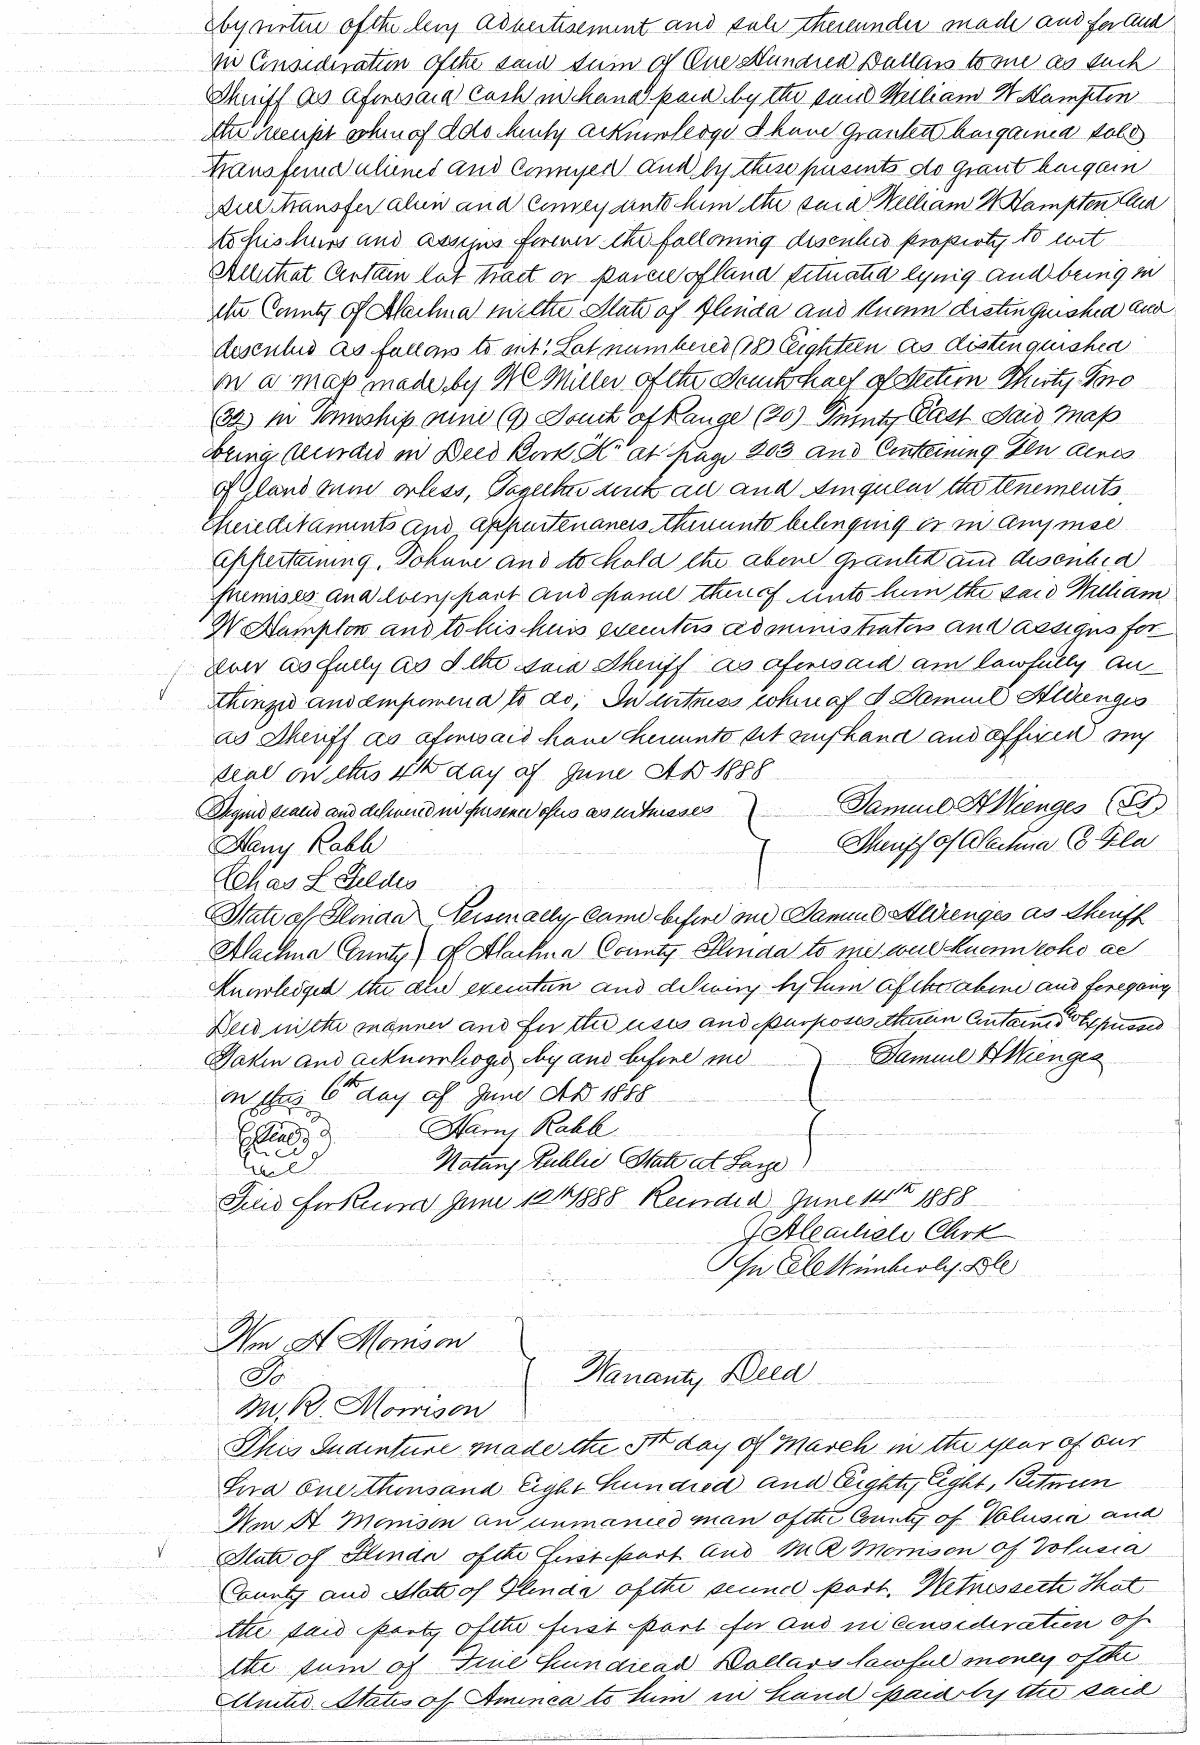 by virtue of the levy advertisement and sale thereunder made and for and
in Consideration of the said sum of One Hundred Dollars to me as such
Sheriff as aforesaid Cash in hand paid by the said William W Hampton
the receipt whereof I do hereby acknowledge I have Granted bargained sold
transferred aliened and Conveyed and by these presents do grant bargain
sell transfer alien and Convey unto him the said William W Hampton and
to his heirs and assigns forever the following described property to wit
All that Certain lot tract or parcel of land situated lying and being in
the County of Alachua in the State of Florida and Known distinguished and
described as follows to wit: Lot numbered (18) Eighteen as distinguished
on a map made by N C Miller of the South half of Section Thirty Two
(32) in Township nine (9) South of Range (20) Twenty East Said map
being recorded in Deed Book "K" at page 203 and Containing Ten acres
of land more or less, Together with all and singular the tenements
hereditaments and appurtenances thereunto belonging or in any wise
appertaining. To have and to hold the above granted and described
premises and every part and parcel thereof unto him the said William
W Hampton and to his heirs executors administrators and assigns for
ever as fully as I the said Sheriff as aforesaid am lawfully au
thorized and empowered to do; In witness whereof I Samuel H Wienges
as Sheriff as aforesaid have hereunto set my hand and affixed my
seal on this 4th day of June AD 1888
Signed sealed and delivered in presence of us as witnesses Samuel H Wienges (LS)
Harry Rabb Sheriff of Alachua Co Fla
Chas L Fildes
State of Florida Personally Came before me Samuel H Wienges as Sheriff
Alachua County of Alachua County Florida to me well Known who ac
Knowledged the due execution and delivery by him of the above and foregoing
Deed in the manner and for the uses and purposes therein Contained & Expressed
Taken and acknowledged by and before me Samuel H Wienges
on this 6th day of June AD 1888
Seal Harry Rabb
Notary Public State at Large
Filed for Record June 12th 1888 Recorded June 14th 1888
J A Clerk
Pr Wimberly DC
Wm H Morrison
To Warranty Deed
M. R. Morrison
This Indenture made the 5th day of March in the year of our
Lord One thousand Eight hundred and Eighty Eight, Between
Wm H Morrison an unmarried man of the County of Volusia and
State of Florida of the first part and M R Morrison of Volusia
County and State of Florida of the second part. Witnesseth that
the said party of the first part for and in consideration of
the sum of Five hundread Dollars lawful money of the
United States of America to him in hand paid by the said